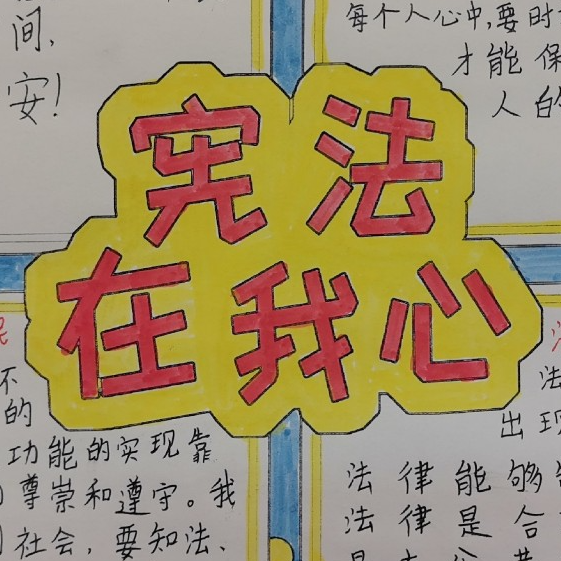 间，
安！
每个人心中，要时
才能保
人的
宪法
在我心
不
的
功能的实现靠
尊崇和遵守。我
社会，要知法、
法
出现
法律能够
法律是合